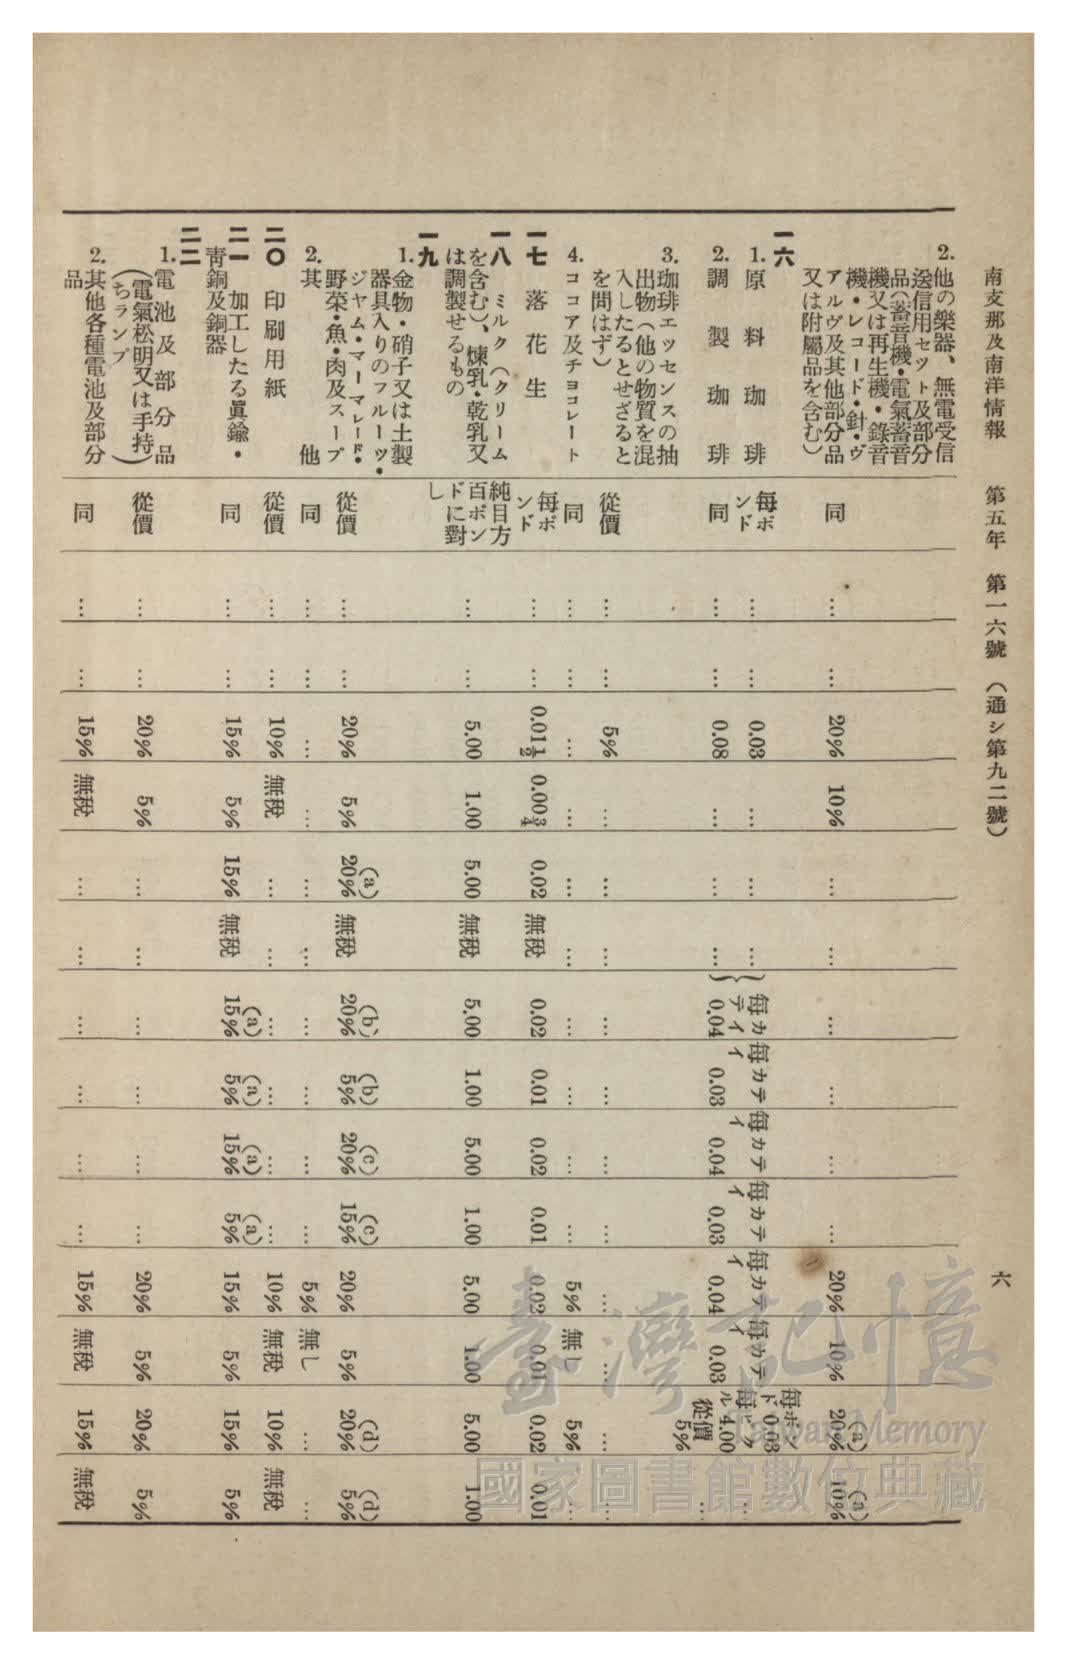 南支那及南洋情報　第五年　第一六號　（通シ第九二號）　六
2. 他の樂器、無電受信
送信用セット及部分
品（蓄音機・電氣蓄音
機又は再生機・錄音
機・レコード・針・ヴ
アルヴ及其他部分品
又は附屬品を含む） 同 … … 20% 10% … … … … … … 20% 10% (a)20% (a)10%
一六
1. 原料珈琲 每ポンド … … 0.03 … … …
2. 調製珈琲 同 … … 0.08 … … … 每カティ0.04 每カティ0.03 每カティ0.04 每カティ0.03 每カティ0.04 每カティ0.03 每ポンド0.03 每ピクル4.00 從價5% …
3. 珈琲エッセンスの抽
出物（他の物質を混
入したるとせざると
を問はず） 從價 … … 5% … … … … … … … … … … …
4. ココア及チョコレート 同 … … … … … … … … … … 5% 無し 5% …
一七　落花生 每ポンド … … 0.01½ 0.00¾ 0.02 無稅 0.02 0.01 0.02 0.01 0.02 0.01 0.02 0.01
一八　ミルク（クリーム
を含む）、煉乳・乾乳又
は調製せるもの 純目方百ポンドに對し … … 5.00 1.00 5.00 無稅 5.00 1.00 5.00 1.00 5.00 1.00 5.00 1.00
一九
1. 金物・硝子又は土製
器具入りのフルーツ・
ジャム・マーマレード・
野菜・魚・肉及スープ 從價 … … 20% 5% (a)20% 無稅 (b)20% (b)5% (c)20% (c)15% 20% 5% (d)20% (d)5%
2. 其他 同 … … … … … … … … … … 5% 無し … …
二〇　印刷用紙 從價 … … 10% 無稅 … … … … … … 10% 無稅 10% 無稅
二一　加工したる眞鍮・
靑銅及銅器 同 … … 15% 5% 15% 無稅 (a)15% (a)5% (a)15% (a)5% 15% 5% 15% 5%
二二
1. 電池及部分品
（電氣松明又は手持
ちランプ） 從價 … … 20% 5% … … … … … … 20% 5% 20% 5%
2. 其他各種電池及部分
品 同 … … 15% 無稅 … … … … … … 15% 無稅 15% 無稅
臺灣記憶
Taiwan Memory
國家圖書館數位典藏